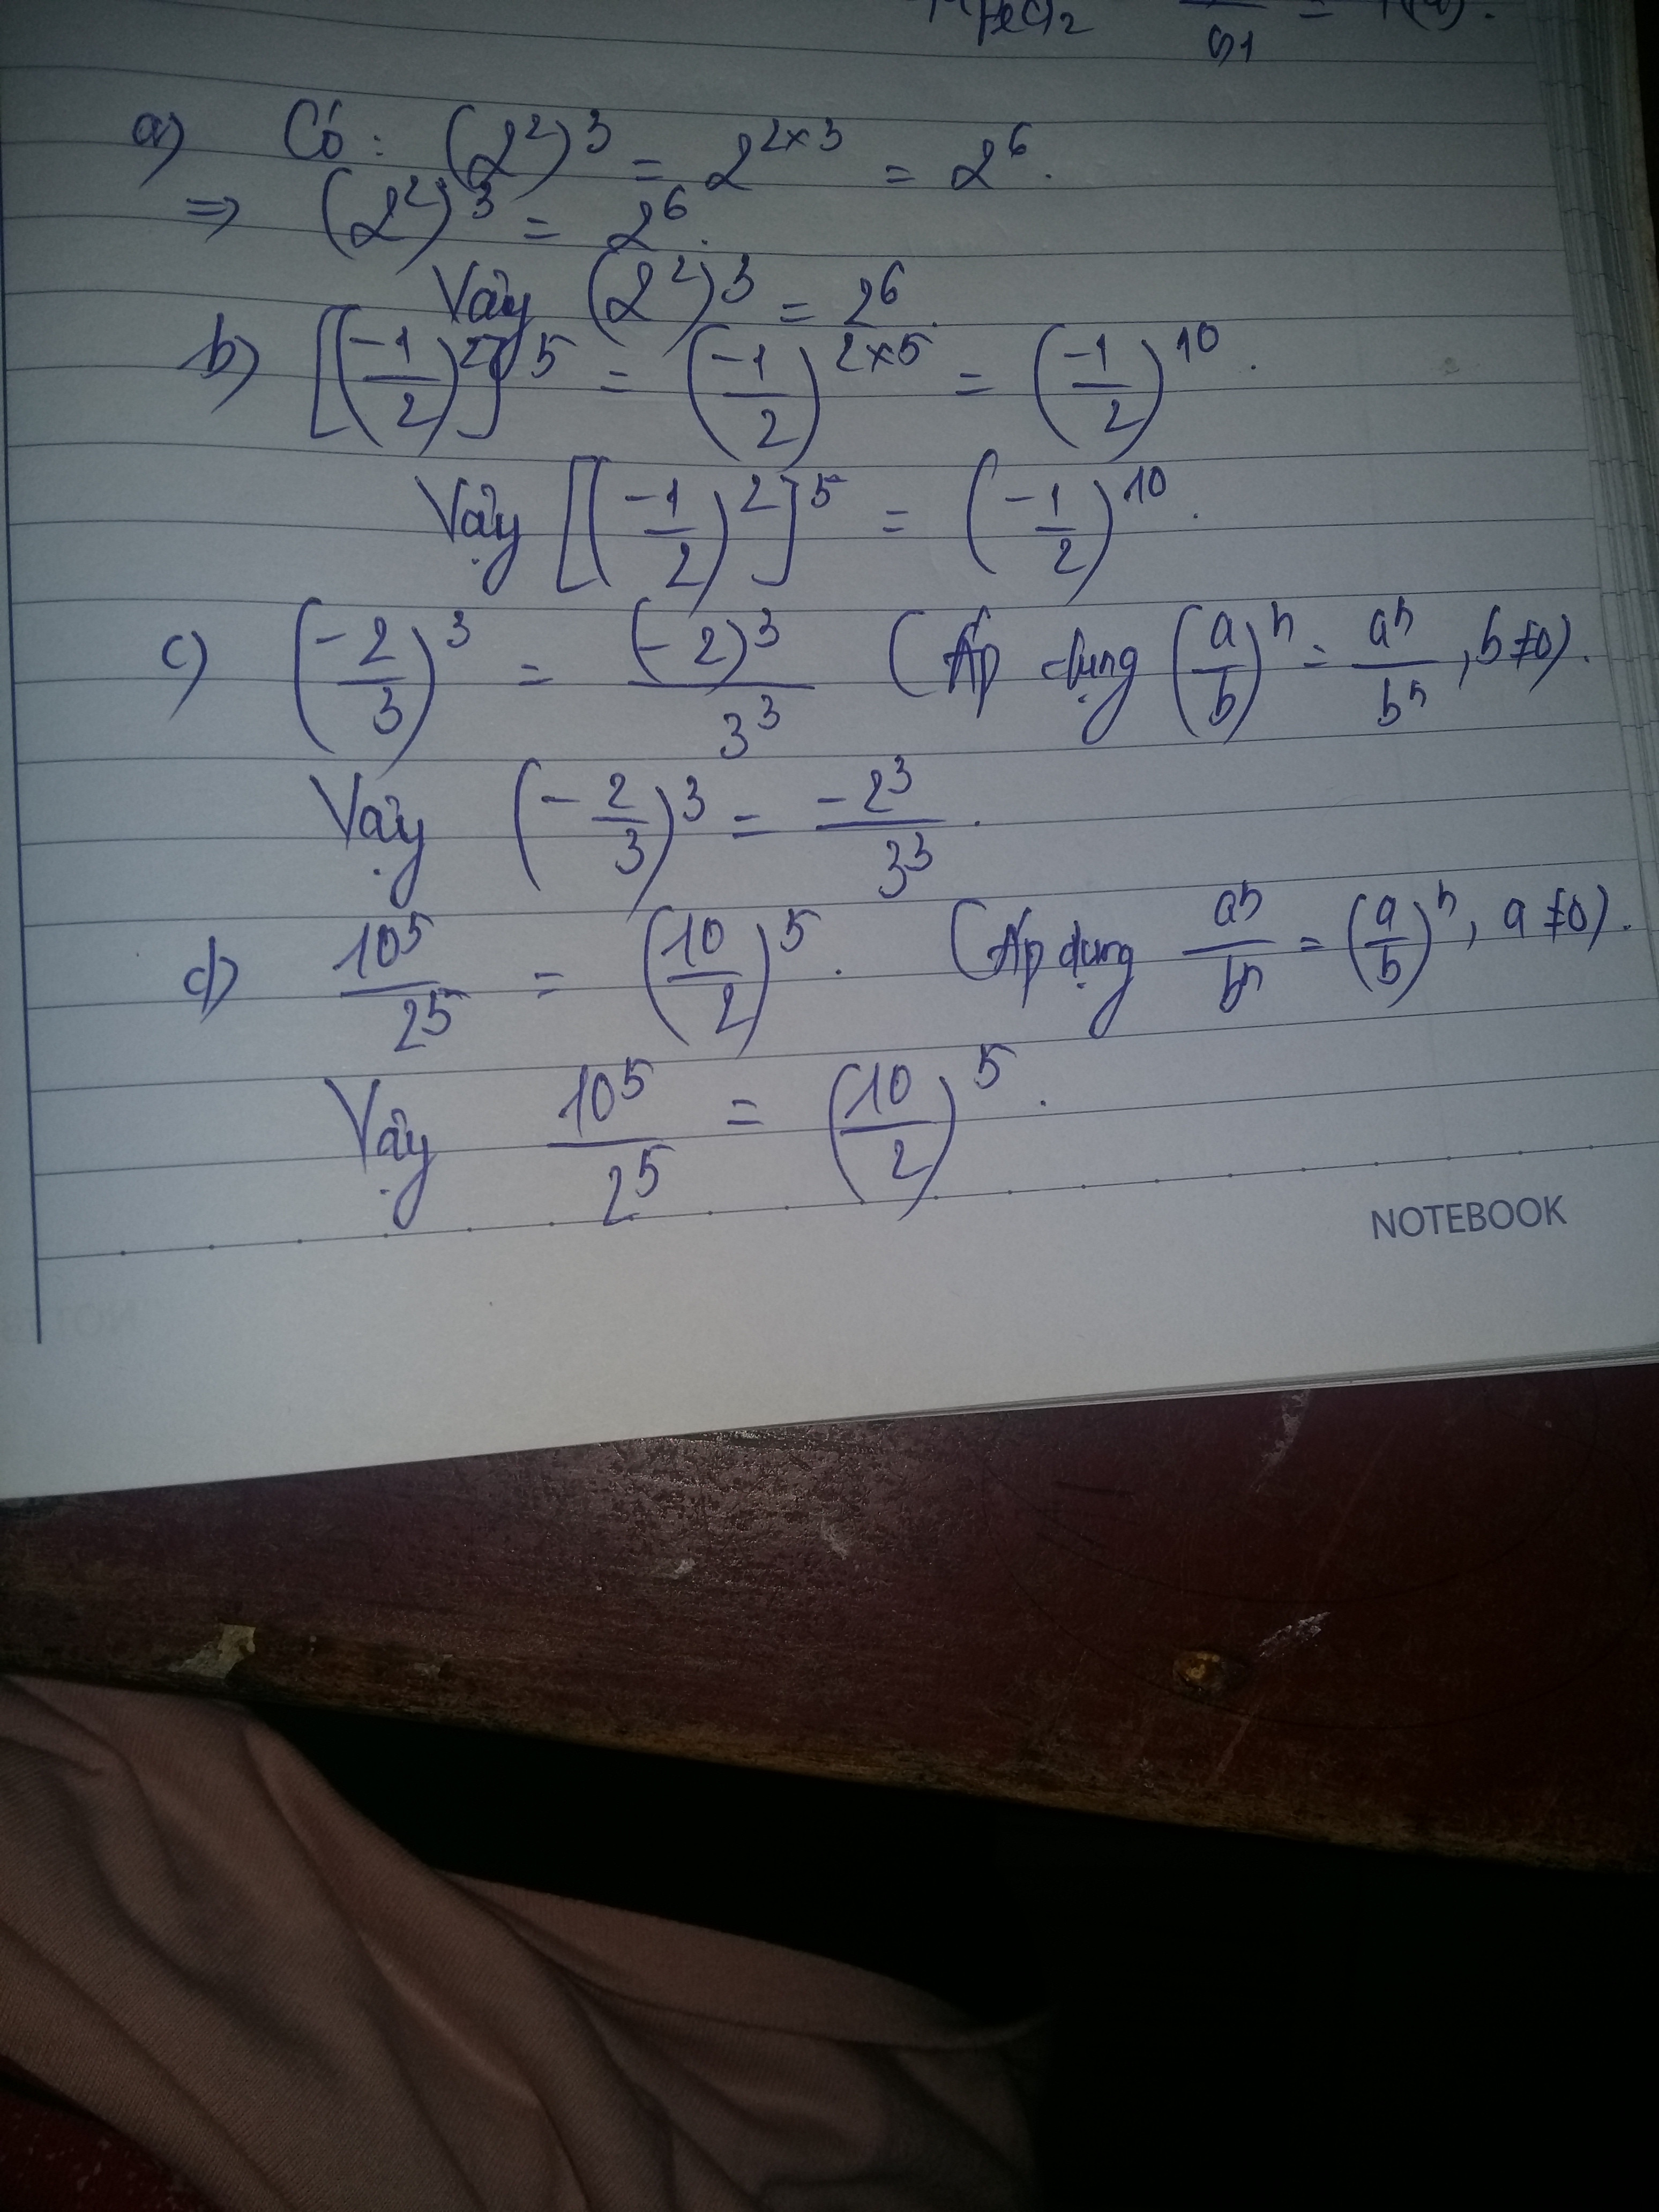 FeCl₂
a) Có : (2²)³ = 2^{2×3} = 2⁶.
⇒ (2²)³ = 2⁶.
Vậy (2²)³ = 2⁶.
b) [(-1/2)²]⁵ = (-1/2)^{2×5} = (-1/2)¹⁰.
Vậy [(-1/2)²]⁵ = (-1/2)¹⁰.
c) (-2/3)³ = (-2)³/3³ (Áp dụng (a/b)ⁿ = aⁿ/bⁿ, b≠0).
Vậy (-2/3)³ = -2³/3³.
d) 10⁵/2⁵ = (10/2)⁵. (Áp dụng aⁿ/bⁿ = (a/b)ⁿ, a≠0).
Vậy 10⁵/2⁵ = (10/2)⁵.
NOTEBOOK